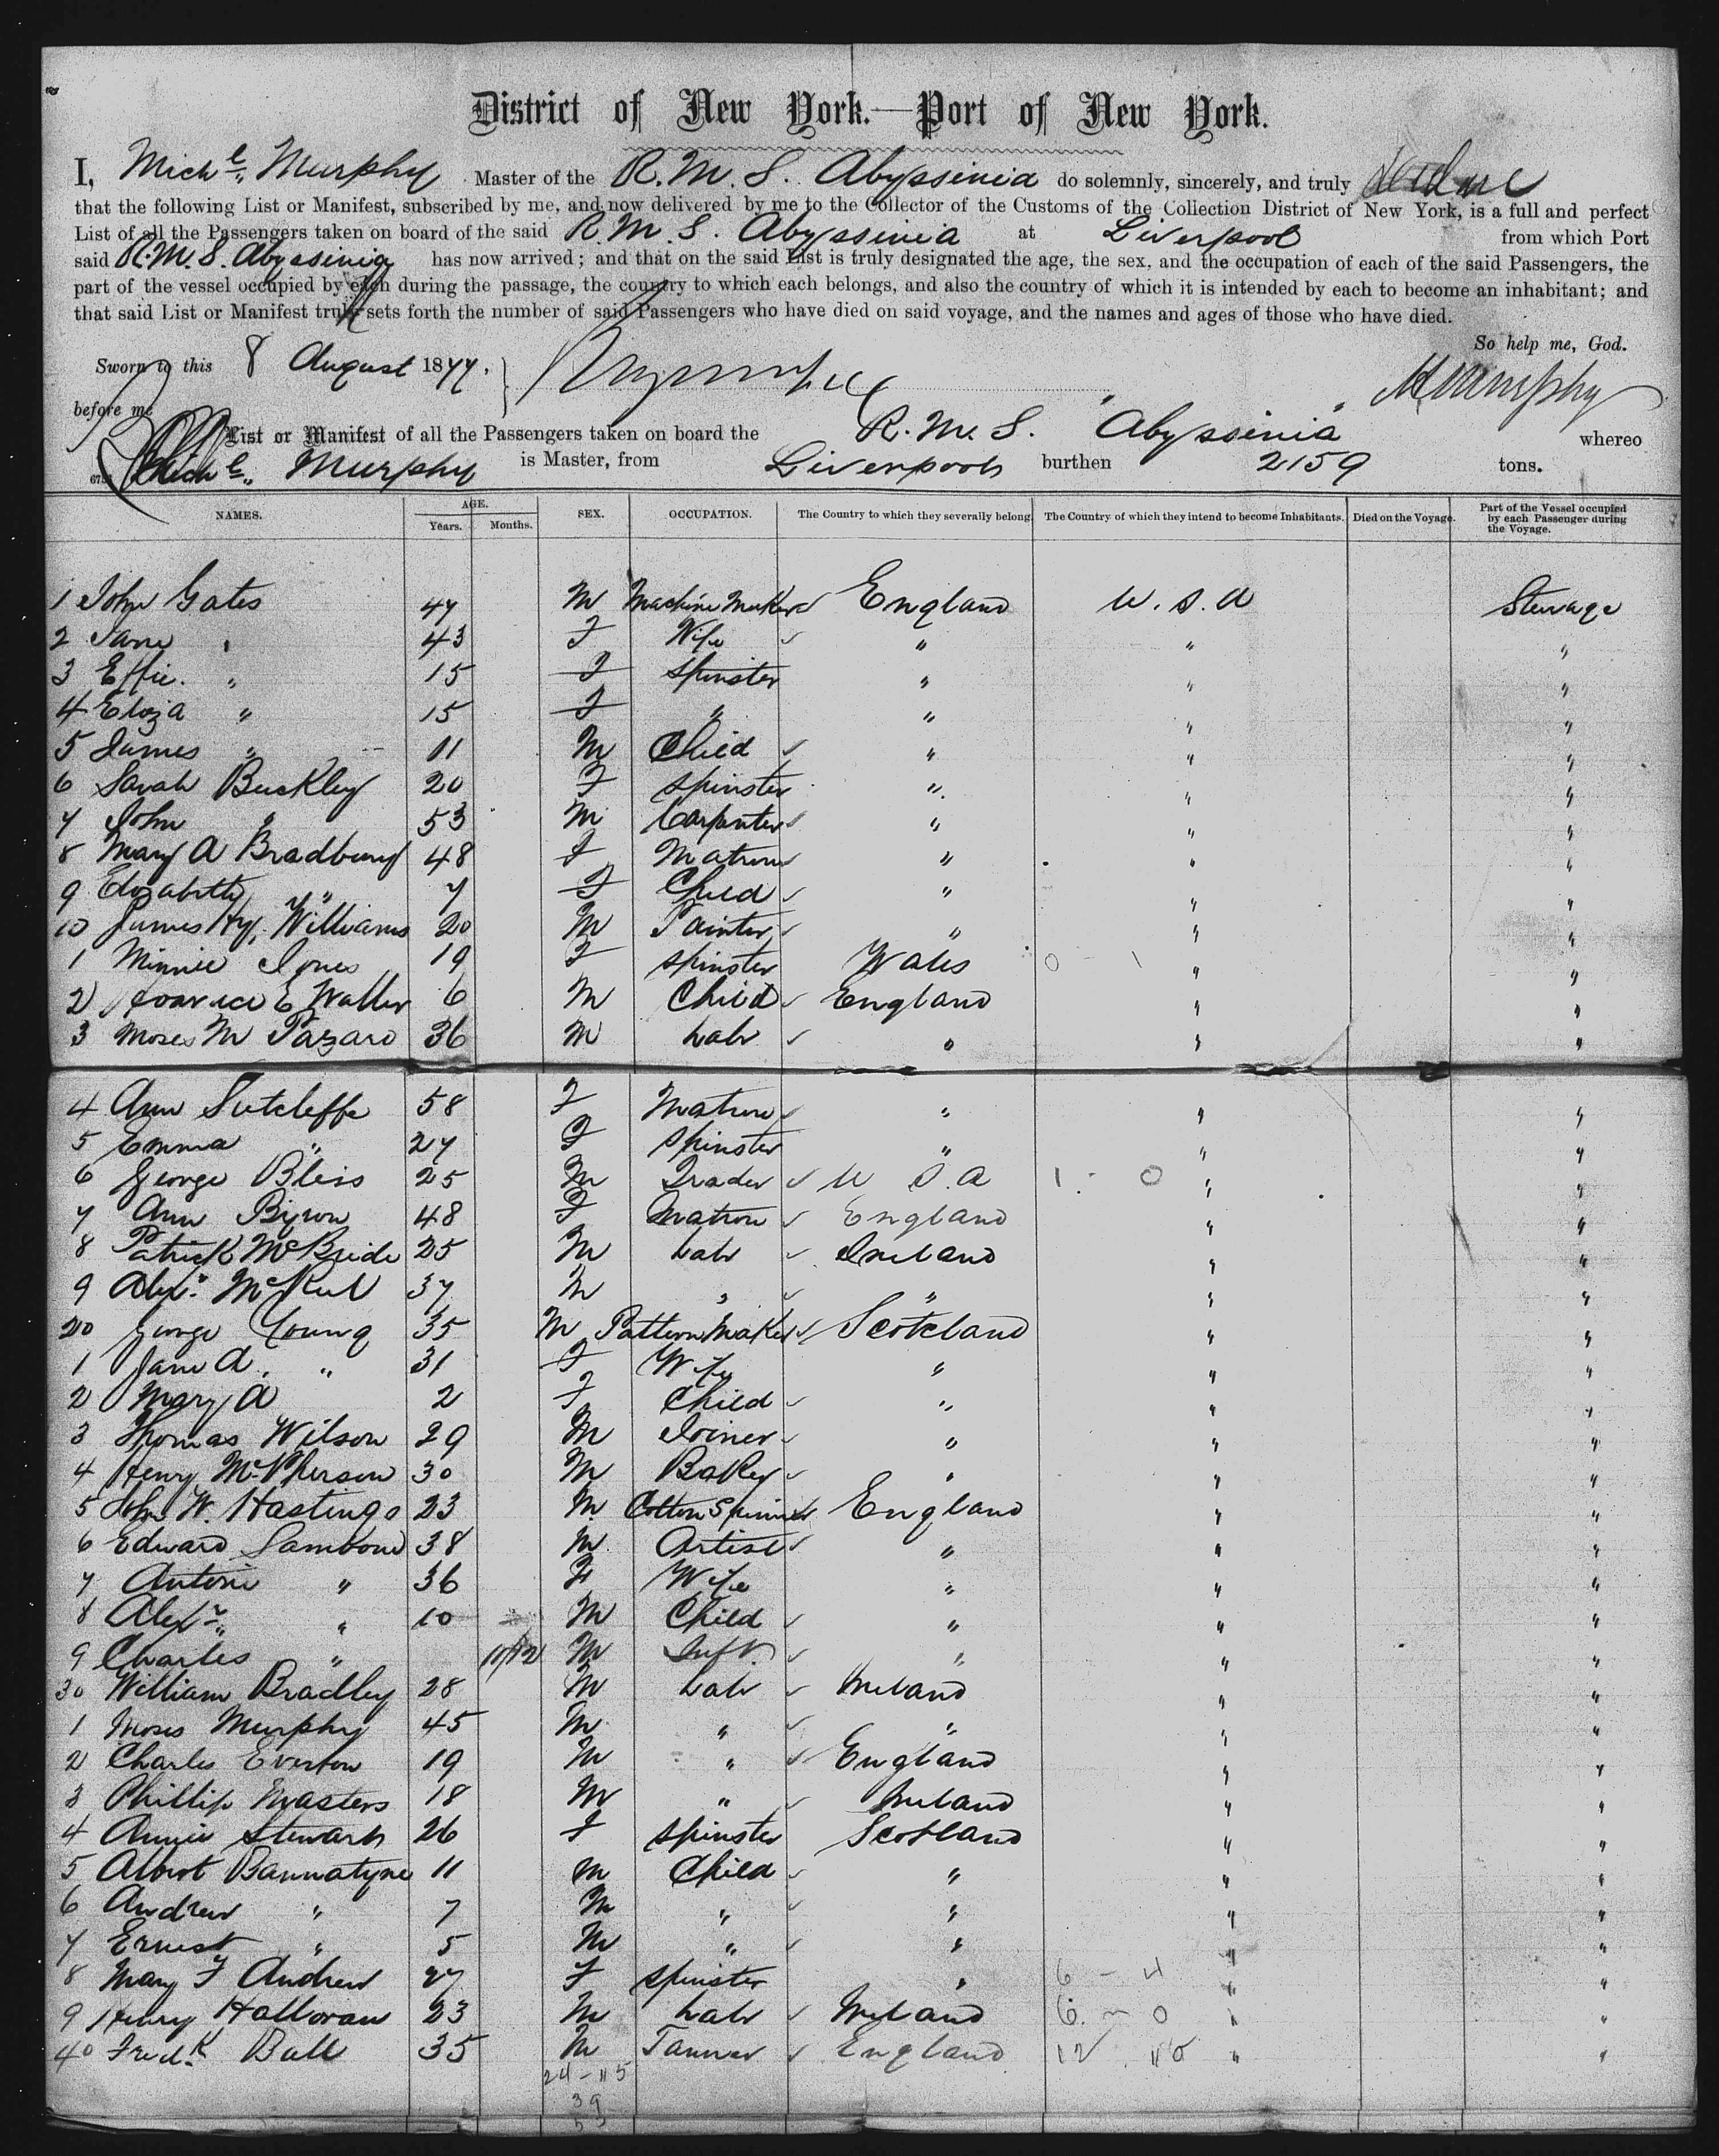 District of New York.—Port of New York.
I, Mich^l Murphy Master of the R.M.S. Abyssinia do solemnly, sincerely, and truly
that the following List or Manifest, subscribed by me, and now delivered by me to the Collector of the Customs of the Collection District of New York, is a full and perfect
List of all the Passengers taken on board of the said R.M.S. Abyssinia at Liverpool from which Port
said R.M.S. Abyssinia has now arrived; and that on the said List is truly designated the age, the sex, and the occupation of each of the said Passengers, the
part of the vessel occupied by each during the passage, the country to which each belongs, and also the country of which it is intended by each to become an inhabitant; and
that said List or Manifest truly sets forth the number of said Passengers who have died on said voyage, and the names and ages of those who have died.
So help me, God.
Sworn to this 8 August 1877. MMurphy
before me
List or Manifest of all the Passengers taken on board the R.M.S. "Abyssinia" whereo
Mich^l Murphy is Master, from Liverpool burthen 2159 tons.
NAMES. AGE. Years. Months. SEX. OCCUPATION. The Country to which they severally belong. The Country of which they intend to become Inhabitants. Died on the Voyage. Part of the Vessel occupied by each Passenger during the Voyage.
1 John Gates 47 M Machine Maker England U.S.A Steerage
2 Jane " 43 F Wife " " "
3 Effie. " 15 F Spinster " " "
4 Eliza " 15 F " " " "
5 James " 11 M Child " " "
6 Sarah Buckley 20 F Spinster " " "
7 John " 53 M Carpenter " " "
8 Mary A Bradbury 48 F Matron " " "
9 Elizabeth " 7 F Child " " "
10 James Hy. Williams 20 M Painter " " "
1 Minnie Jones 19 F Spinster Wales 0 - 1 " "
2 E Waller 6 M Child England " "
3 Moses M 36 M Labr " " "
4 Ann Sutcliffe 58 F Matron " " "
5 Emma " 27 F Spinster " " "
6 George Bliss 25 M Trader U S.A 1 - 0 " "
7 Ann Byron 48 F Matron England " "
8 Patrick McBride 25 M Labr Ireland " "
9 Alexr. 37 M " " " "
20 George Young 35 M Pattern Maker Scotland " "
1 Jane A. " 31 F Wife " " "
2 Mary A 2 F Child " " "
3 Thomas Wilson 29 M Joiner " " "
4 Henry McPherson 30 M Baker " " "
5 John W. Hastings 23 M Cotton Spinner England " "
6 Edward Sambourn 38 M Artist " " "
7 Antoni " 36 F Wife " " "
8 Alexr. " 10 M Child " " "
9 Charles " 11/12 M Inft. " " "
30 William Bradley 28 M Labr Ireland " "
1 Moses Murphy 45 M " " " "
2 Charles Everton 19 M " England " "
3 Phillip Masters 18 M " Ireland " "
4 Annie Stewart 26 F Spinster Scotland " "
5 Albert Bannatyne 11 M Child " " "
6 Andrew " 7 M " " " "
7 Ernest " 5 M " " " "
8 Mary F Andrew 27 F Spinster " 6 - 4 " "
9 Henry Halloran 23 M Labr Ireland 6 - 0 " "
40 Fredk Ball 35 M Tanner England 12 " "
24 - 115
39